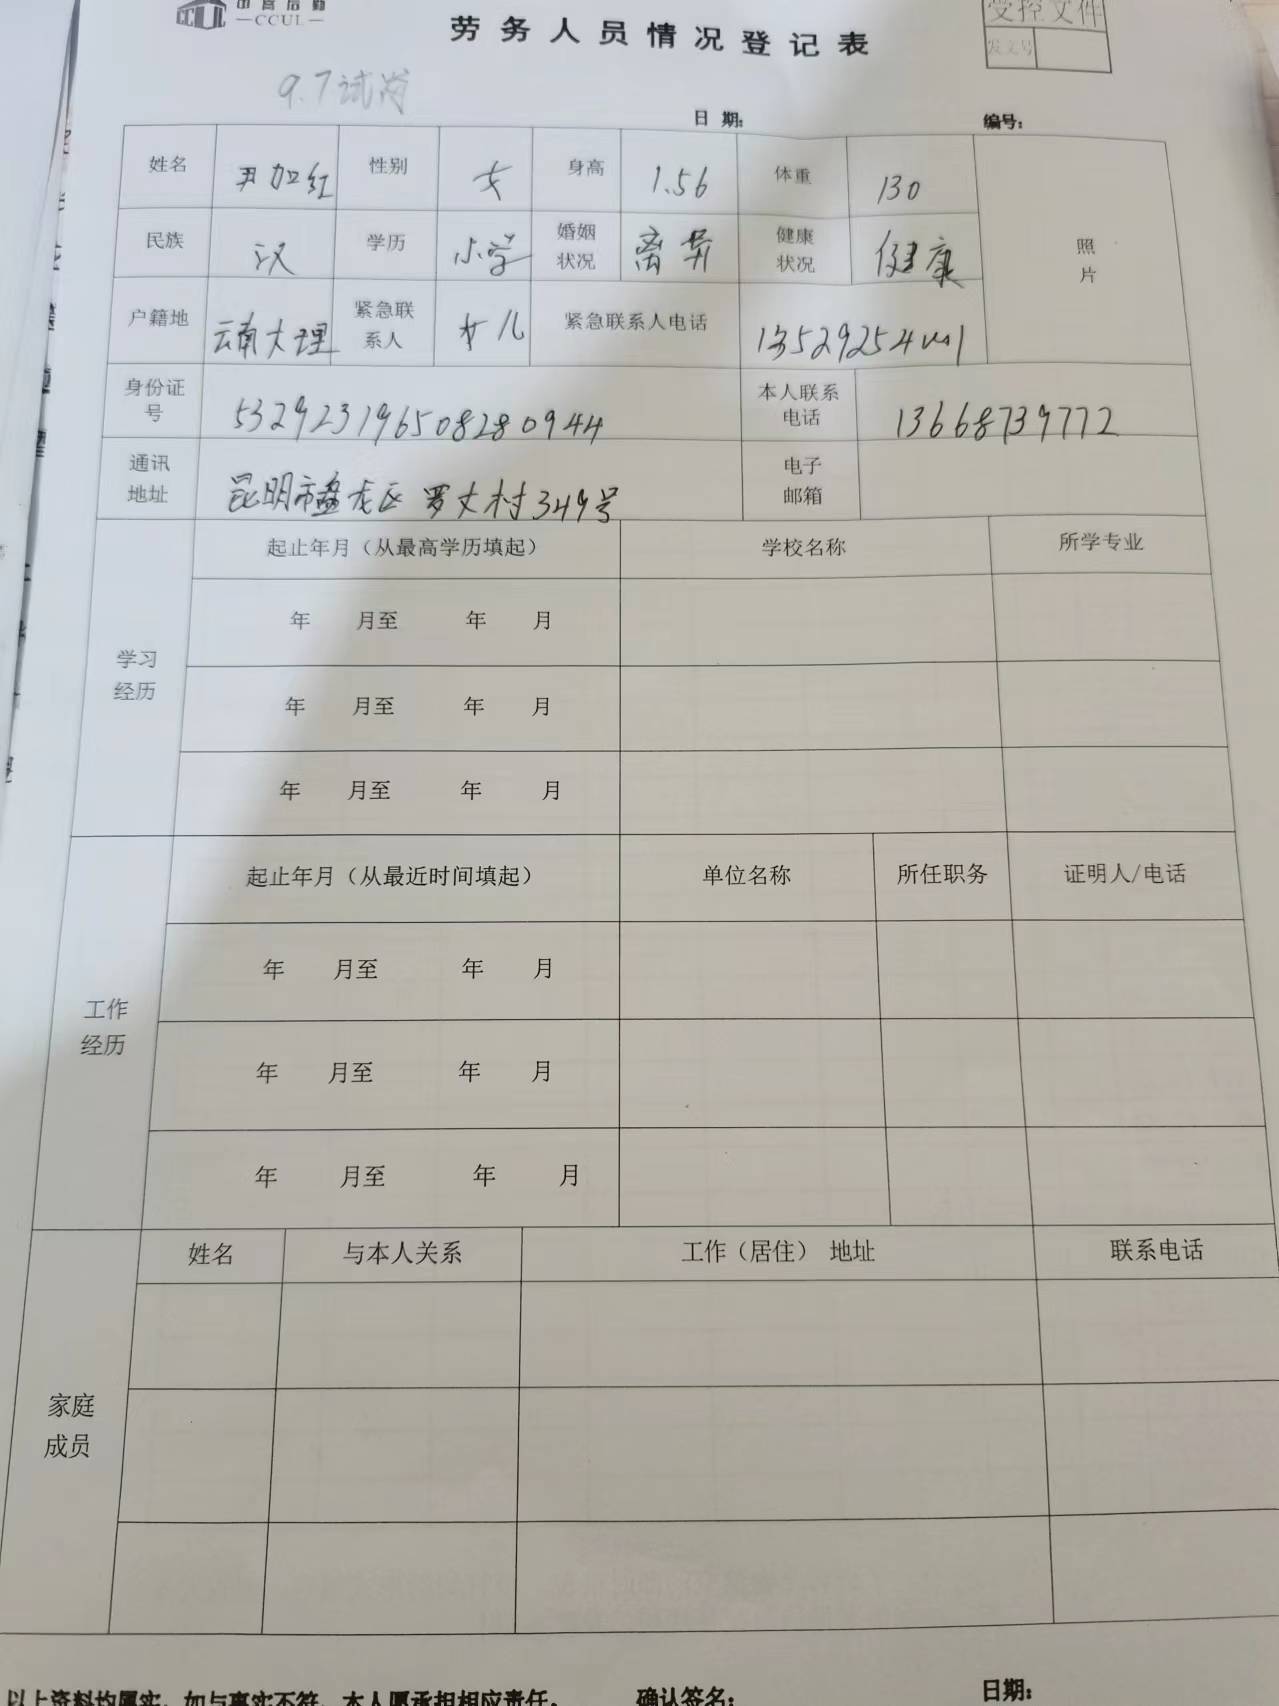 CCUL
劳务人员情况登记表
受控文件
发文号
9.7试岗
日期: 编号:
姓名 尹加红 性别 女 身高 1.56 体重 130 照片
民族 汉 学历 小学 婚姻状况 离异 健康状况 健康
户籍地 云南大理 紧急联系人 女儿 紧急联系人电话 13529254
身份证号 532923196508280944 本人联系电话 13668739772
通讯地址 昆明市盘龙区罗丈村349号 电子邮箱
学习经历 起止年月（从最高学历填起） 学校名称 所学专业
年 月至 年 月
年 月至 年 月
年 月至 年 月
工作经历 起止年月（从最近时间填起） 单位名称 所任职务 证明人/电话
年 月至 年 月
年 月至 年 月
年 月至 年 月
家庭成员 姓名 与本人关系 工作（居住） 地址 联系电话
以上资料均属实，如与事实不符，本人愿承担相应责任。 确认签名: 日期: